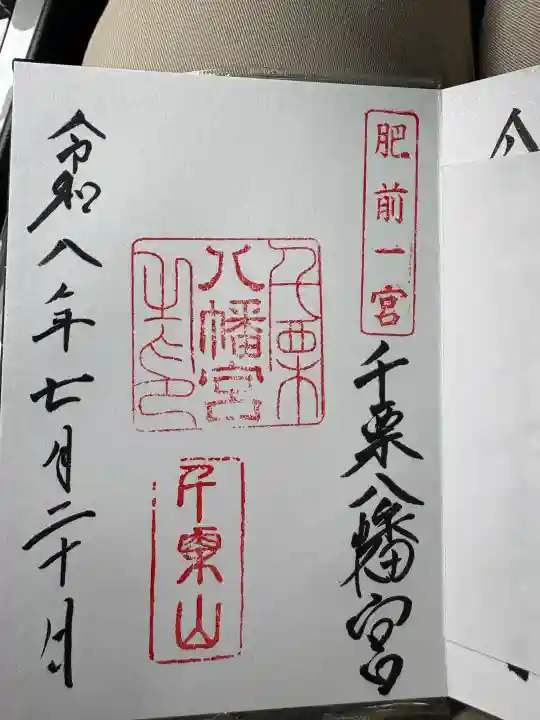 肥前一宮
千栗八幡宮
千栗
八幡宮
之印
千栗山
令和八年七月二十日